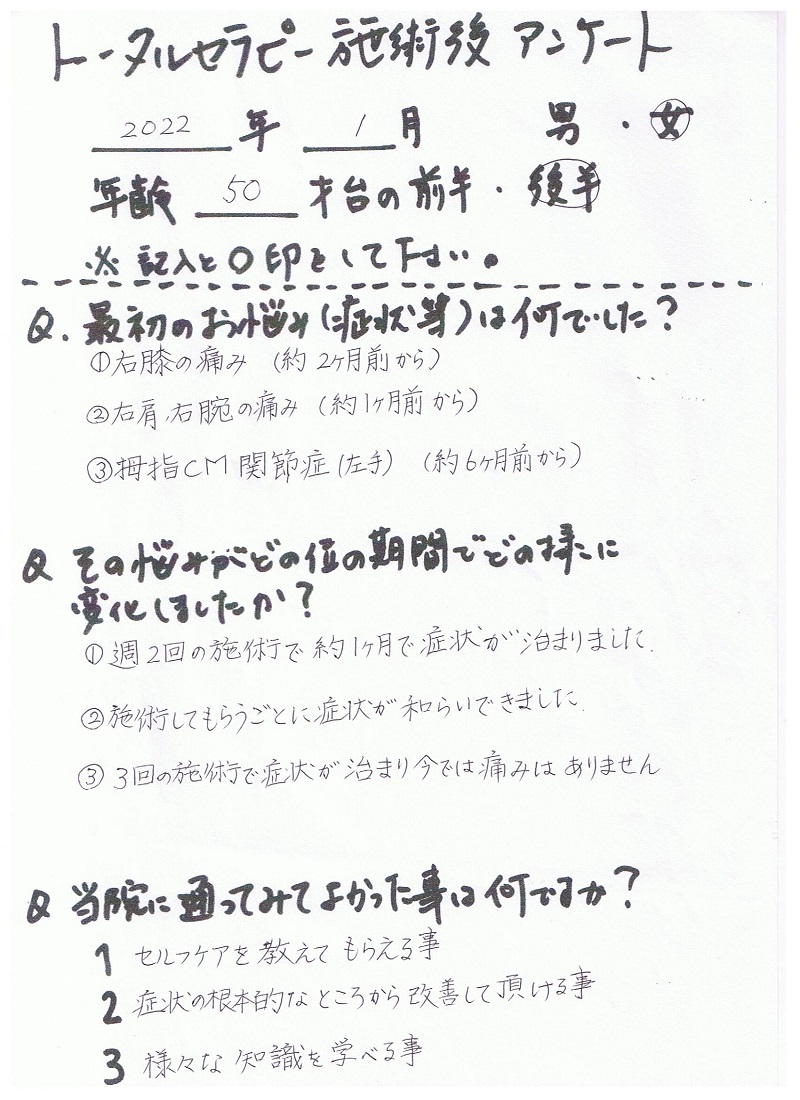 トータルセラピー施術後 アンケート
2022年 1月 男・女
年齢 50 才台の前半・後半
※記入と〇印をして下さい。
Q. 最初のお悩み(症状等)は何でした?
①右膝の痛み (約2ヶ月前から)
②右肩、右腕の痛み (約1ヶ月前から)
③拇指CM関節症(左手) (約6ヶ月前から)
Q その悩みがどの位の期間でどの様に
変化しましたか?
①週2回の施術で約1ヶ月で症状が治まりました.
②施術してもらうごとに症状が和らいできました.
③3回の施術で症状が治まり今では痛みはありません
Q 当院に通ってみてよかった事は何ですか?
1 セルフケアを教えてもらえる事
2 症状の根本的なところから改善して頂ける事
3 様々な知識を学べる事